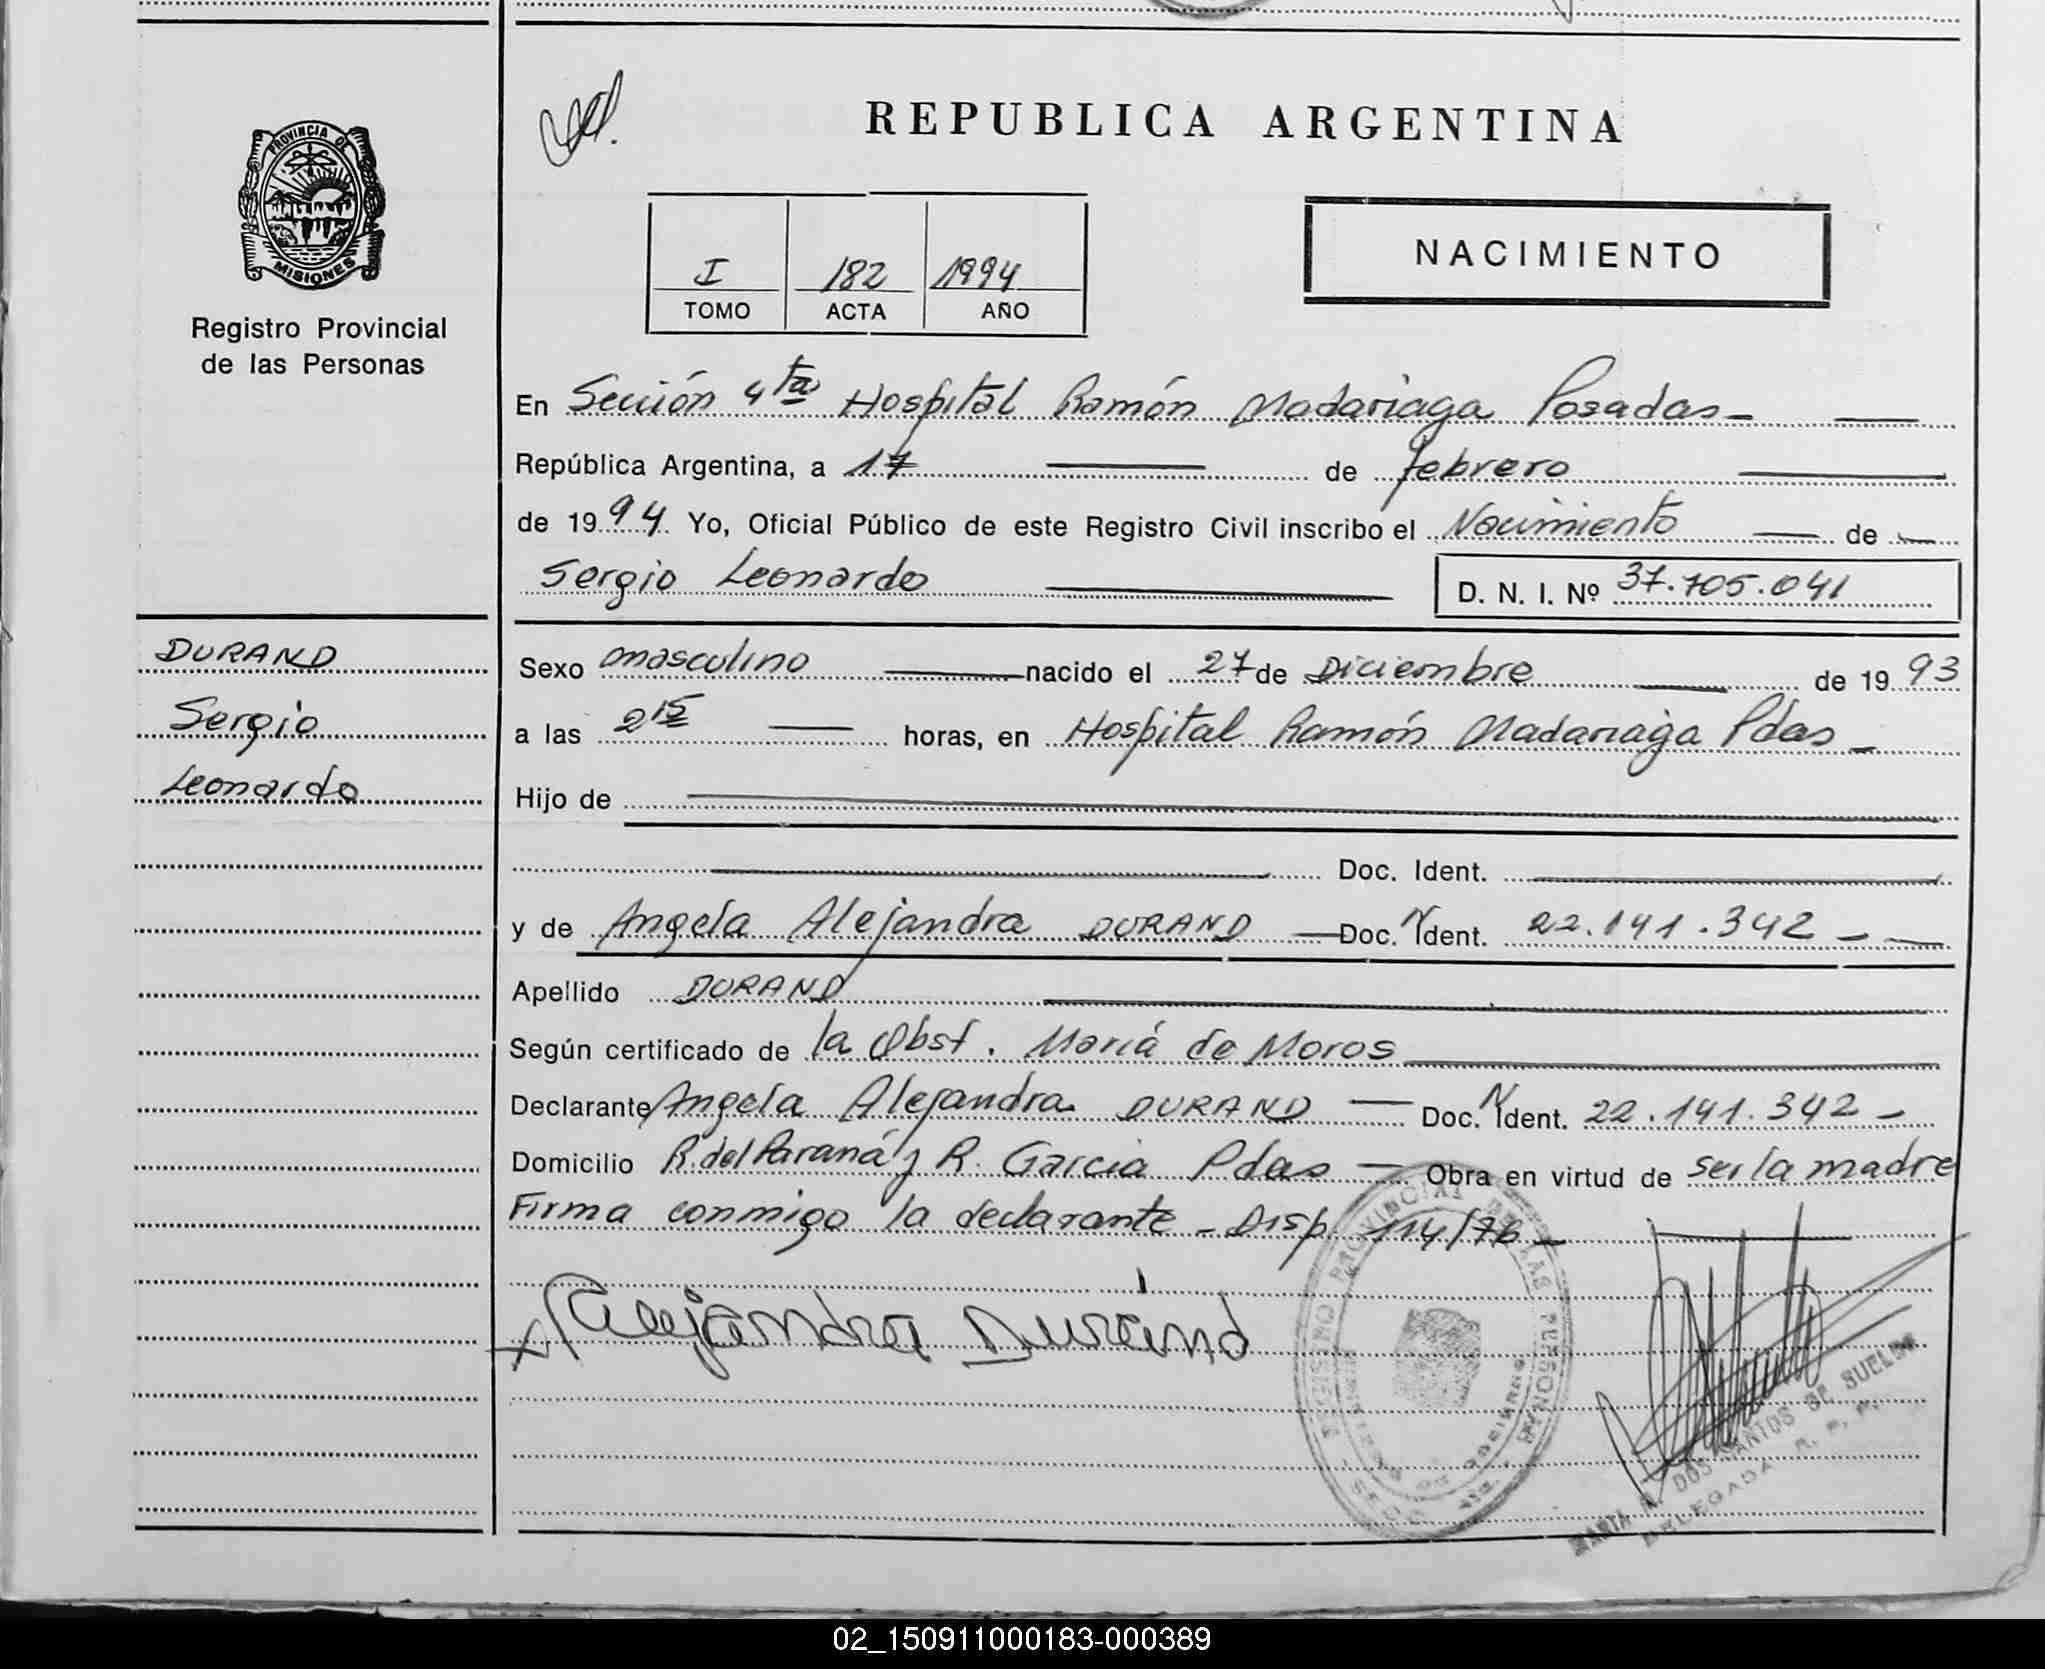 REPUBLICA ARGENTINA
PROVINCIA DE
MISIONES
Registro Provincial
de las Personas
I 182 1994
TOMO ACTA AÑO
NACIMIENTO
En Sección 4ta Hospital Ramón Madariaga Posadas -
República Argentina, a 17 de febrero
de 1994 Yo, Oficial Público de este Registro Civil inscribo el Nacimiento de
Sergio Leonardo D. N. I. Nº 37.705.041
DURAND
Sergio
Leonardo
Sexo masculino nacido el 27 de Diciembre de 1993
a las 2 15 horas, en Hospital Ramón Madariaga Pdas -
Hijo de
Doc. Ident.
y de Angela Alejandra DURAND Doc. N Ident. 22.141.342 -
Apellido DURAND
Según certificado de la Obst. María de Moros
Declarante Angela Alejandra DURAND Doc. N Ident. 22.141.342 -
Domicilio R. del Paraná y R. Garcia Pdas - Obra en virtud de ser la madre
Firma conmigo la declarante - Disp. 114/76 -
Alejandra Durand
REGISTRO PROVINCIAL DE LAS PERSONAS
MINISTERIO DE GOBIERNO
MARTA DOS SANTOS DE
DELEGADA R. P. P.
02_150911000183-000389